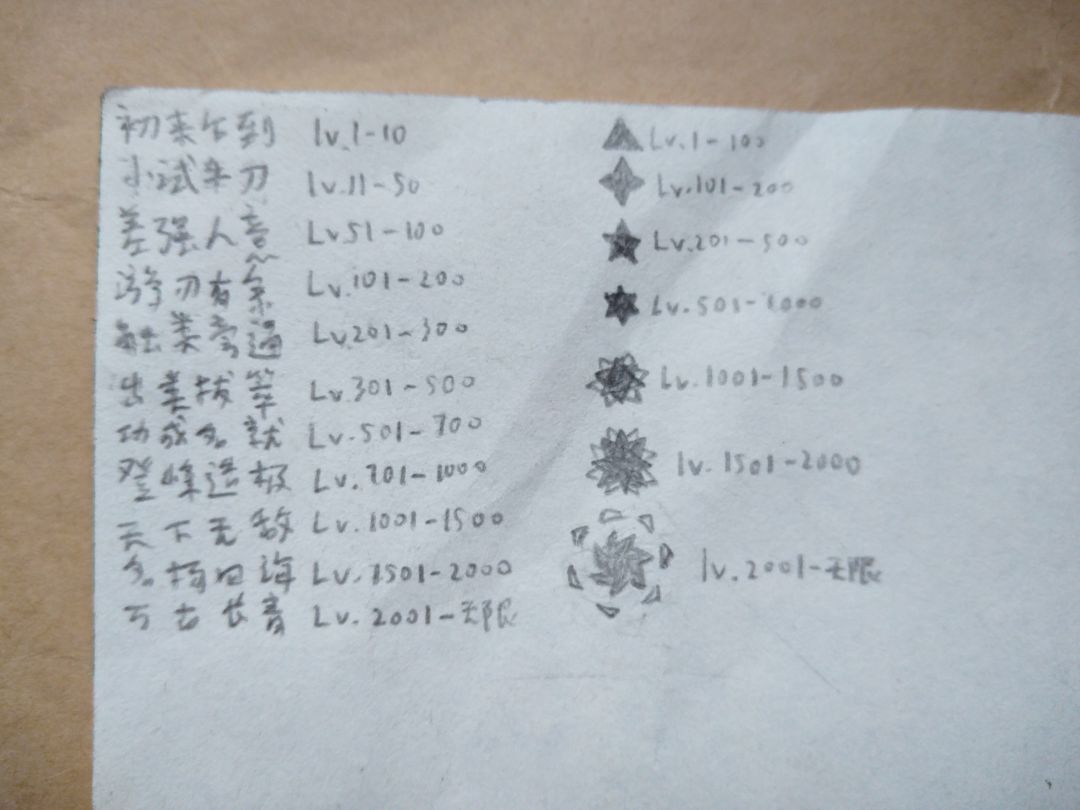 初来乍到 lv.1-10
小试牛刀 lv.11-50
差强人意 Lv51-100
游刃有余 Lv.101-200
触类旁通 Lv.201-300
出类拔萃 Lv.301-500
功成名就 Lv.501-700
登峰造极 Lv.701-1000
天下无敌 Lv.1001-1500
名扬四海 Lv.1501-2000
万古长青 Lv.2001-无限
Lv.1-100
Lv.101-200
Lv.201-500
Lv.501-1000
Lv.1001-1500
lv.1501-2000
lv.2001-无限